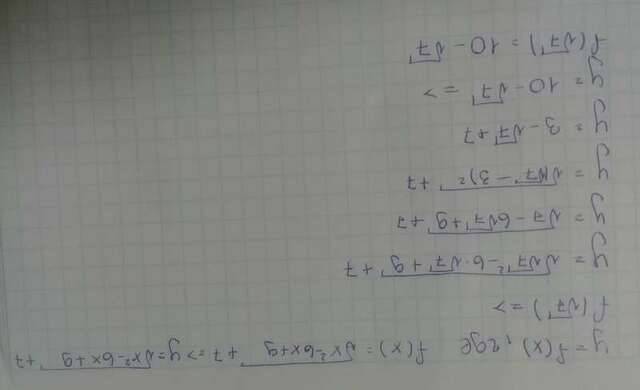 y = f(x), где f(x) = √x²-6x+9 + 7 => y = √x²-6x+9 + 7
f(√7) =>
y = √√7² - 6·√7 + 9 + 7
y = √7 - 6√7 + 9 + 7
y = √(√7 - 3)² + 7
y = 3 - √7 + 7
y = 10 - √7 =>
f(√7) = 10 - √7